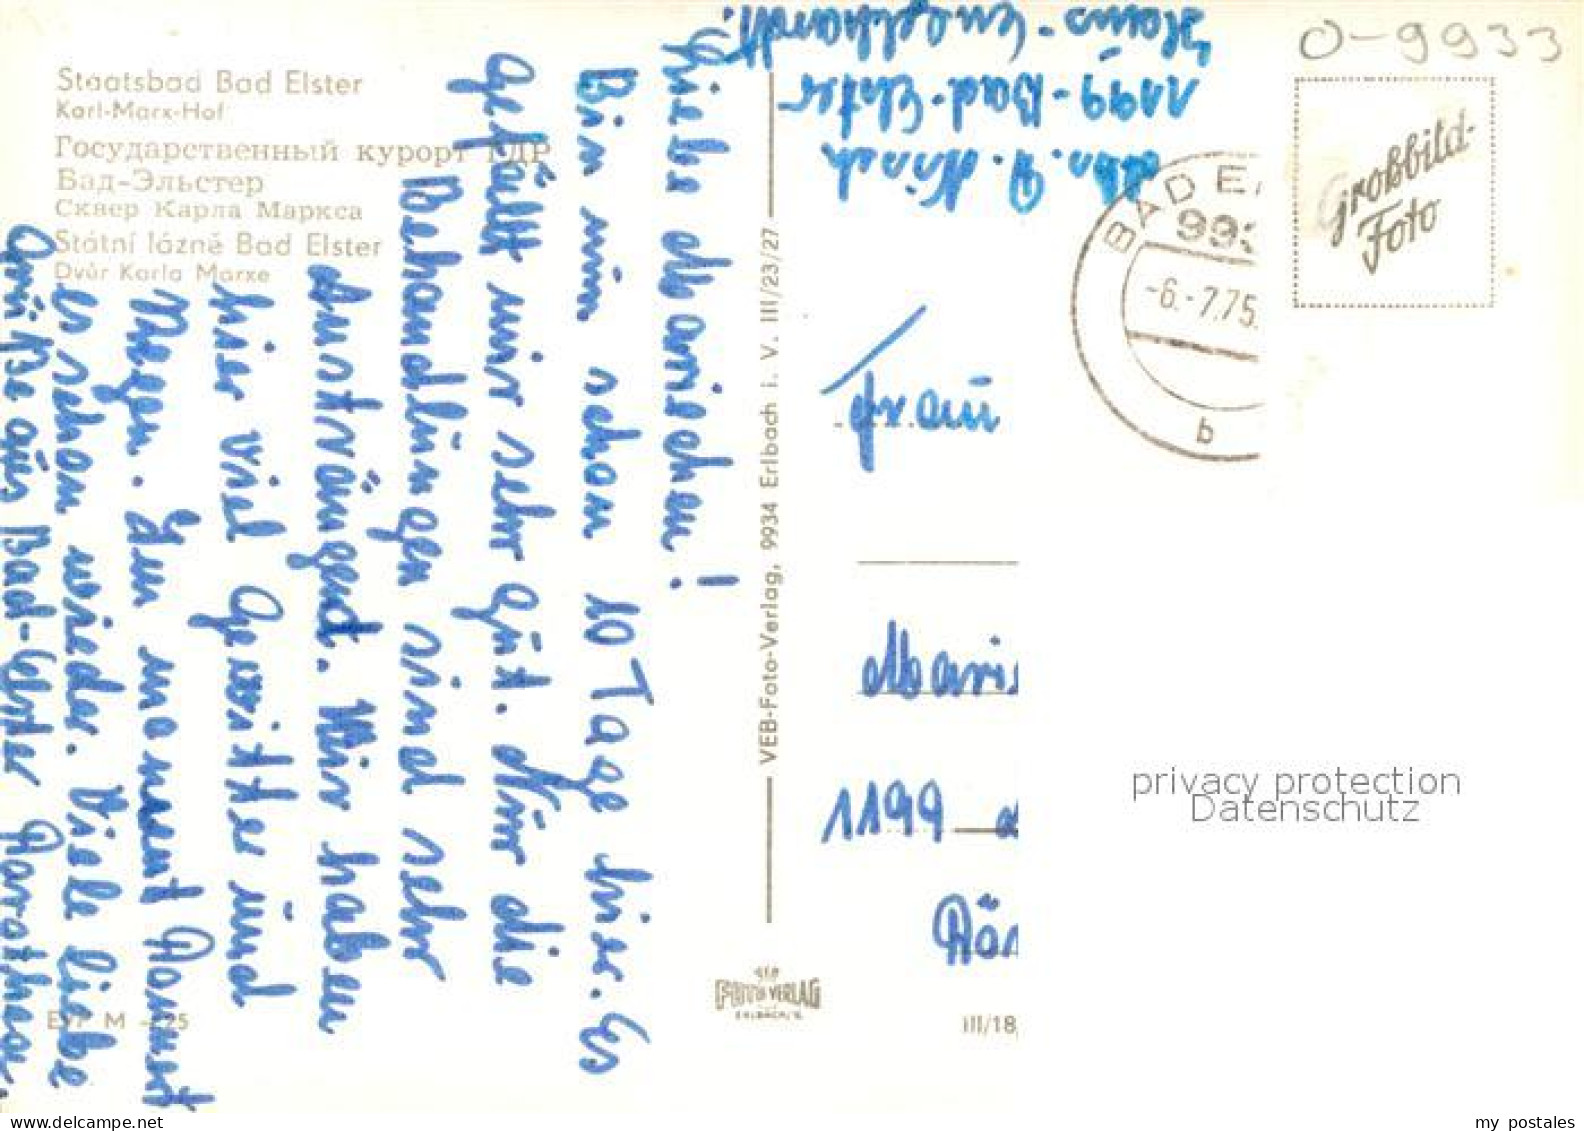 Staatsbad Bad Elster
Karl-Marx-Hof
Государственный курорт ГДР
Бад-Эльстер
Сквер Карла Маркса
Státní lázně Bad Elster
Dvůr Karla Marxe
Liebe Mariechen!
Bin nun schon 10 Tage hier. Es
gefällt mir sehr gut. Nur die
Behandlungen sind sehr
anstrengend. Wir haben
hier viel Gewitter und
Regen. Im moment kommt
es schon wieder. Viele liebe
Grüße aus Bad-Elster
M - 25
VEB-Foto-Verlag, 9934 Erlbach i. V. III/23/27
FOTO VERLAG
ERLBACH/V.
III/18
1199 - Bad-Elster
Haus-
O-9933
Großbild-
Foto
BAD E
993
-6.-7.75
b
Frau
Maris
1199
privacy protection
Datenschutz
my postales